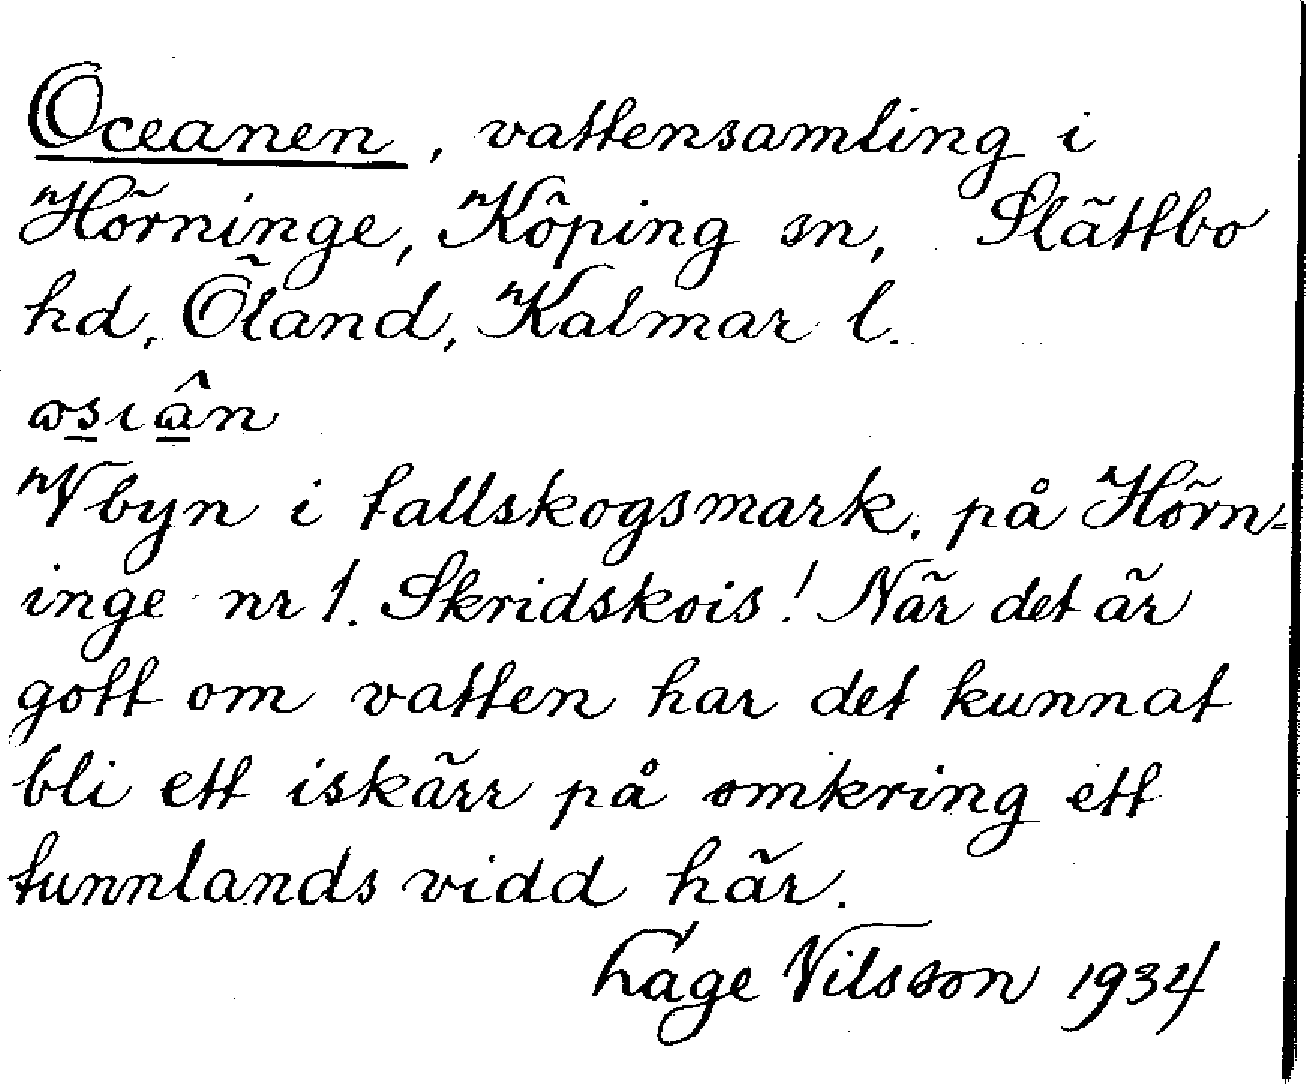 Oceanen, vattensamling i
Hörninge, Köping sn, Slättbo
hd, Öland, Kalmar l.
osıân
V byn i tallskogsmark, på Hörn-
inge nr 1. Skridskois! När det är
gott om vatten har det kunnat
bli ett iskärr på omkring ett
tunnlands vidd här.
Nilsson 1934